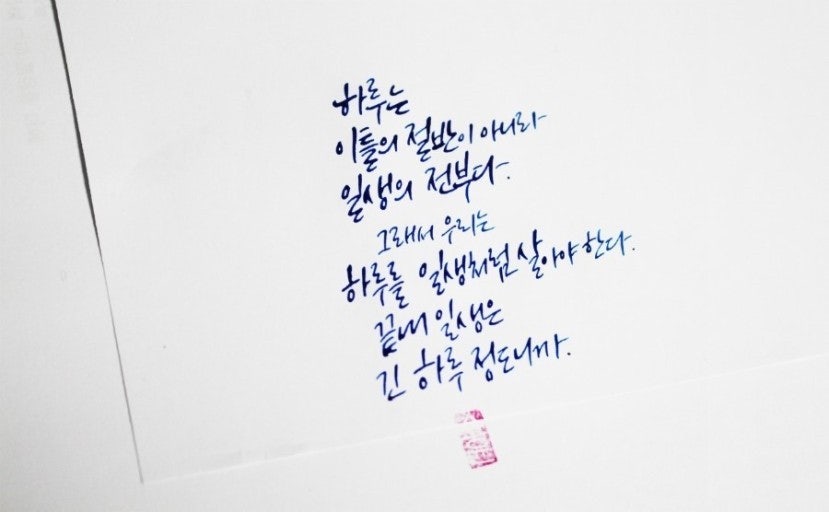 하루는
이틀의 절반이 아니라
일생의 전부다.
그래서 우리는
하루를 일생처럼 살아야 한다.
끝내 일생은
긴 하루 정도니까.